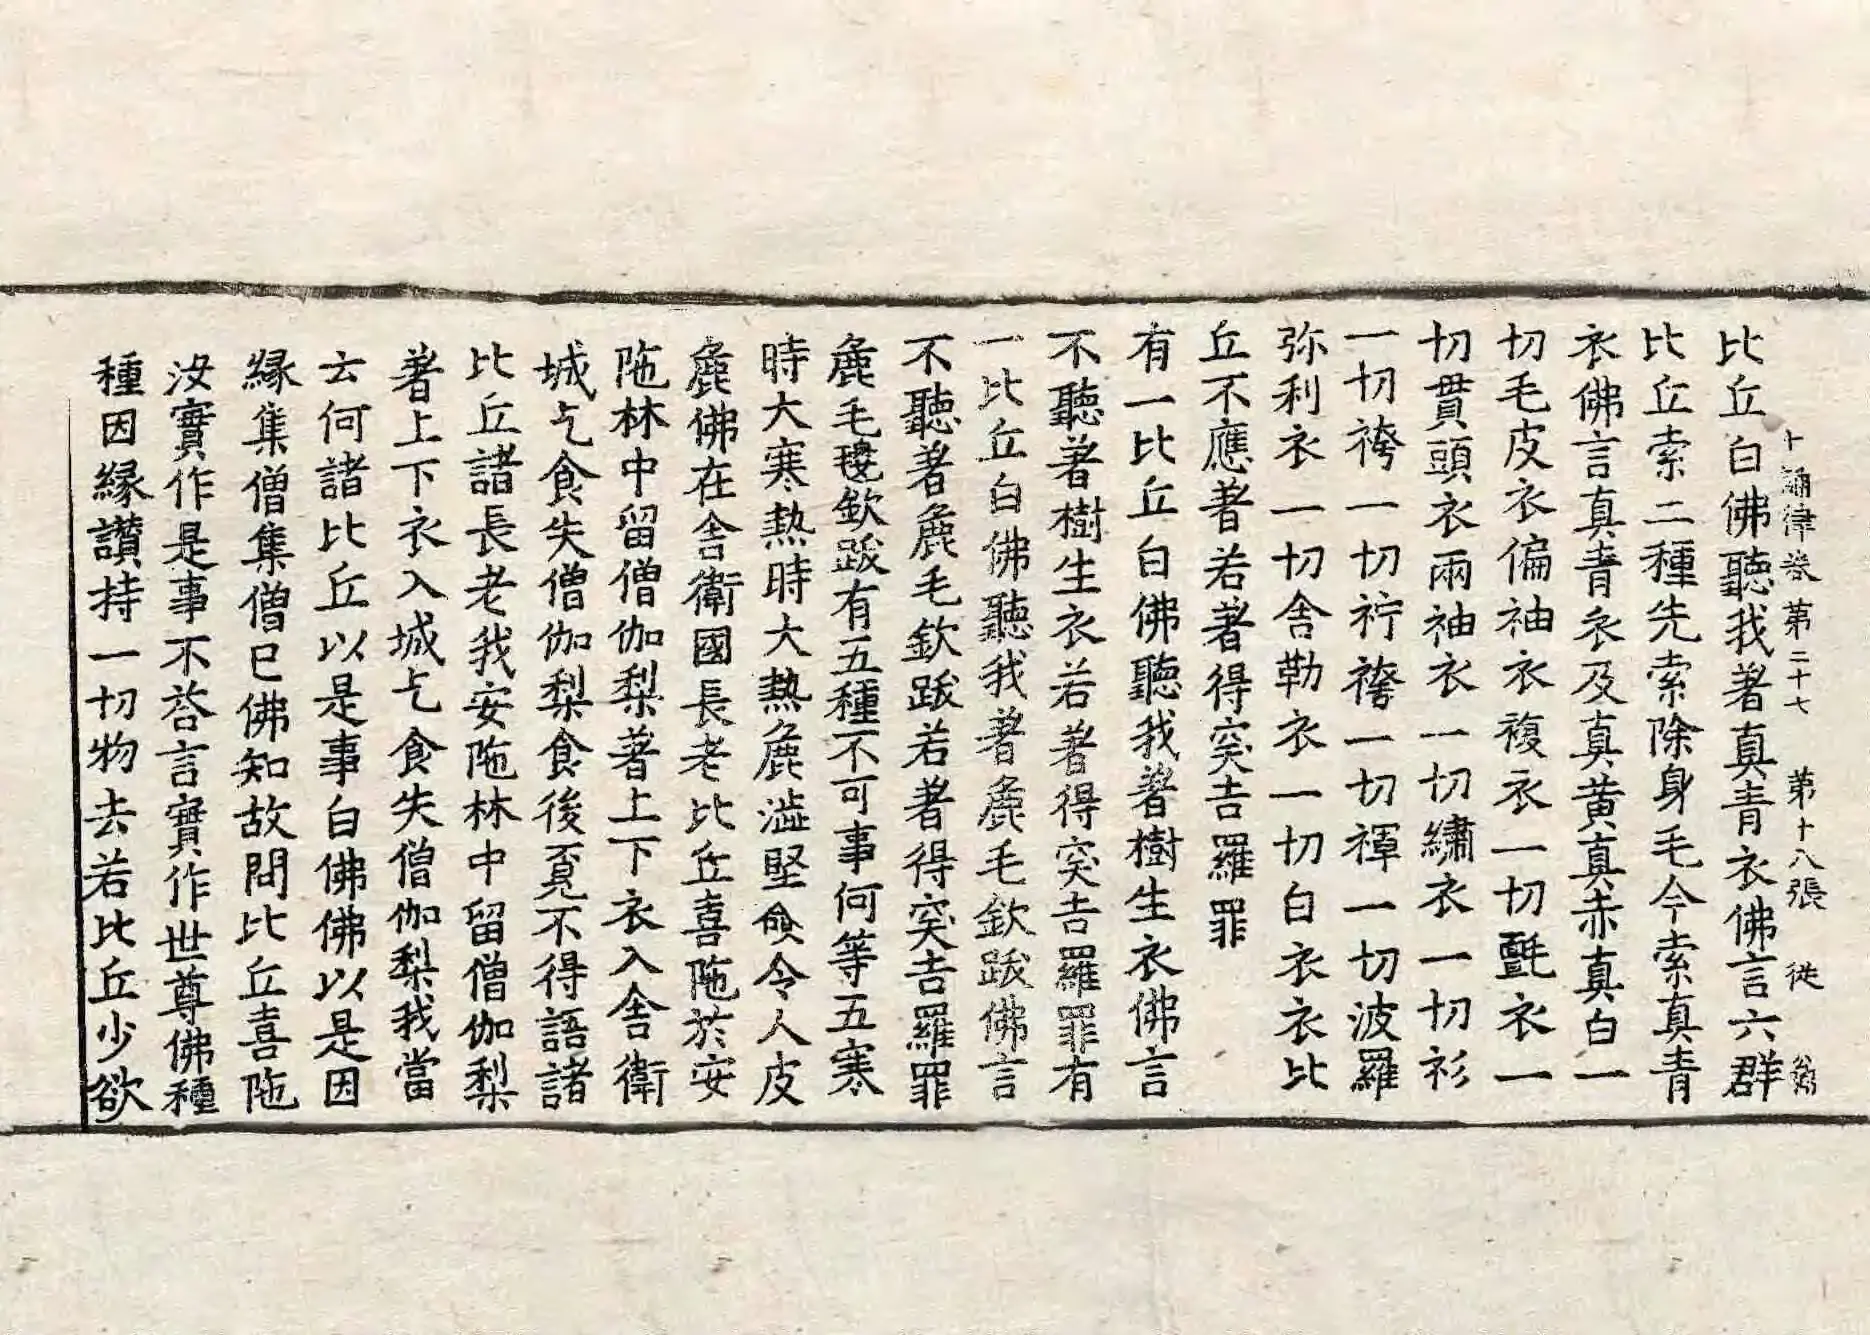 十誦律卷第二十七 第十八張 従
比丘白佛聽我著真青衣佛言六群
比丘索二種先索除身毛今索真青
衣佛言真青衣及真黄真赤真白一
切毛皮衣偏袖衣複衣一切氎衣一
切貫頭衣兩袖衣一切繡衣一切衫
一切袴一切𧘪袴一切褌一切波羅
弥利衣一切舍勒衣一切白衣衣比
丘不應著若著得突吉羅罪
有一比丘白佛聽我著樹生衣佛言
不聽著樹生衣若著得突吉羅罪有
一比丘白佛聽我著麁毛欽跋佛言
不聽著麁毛欽跋若著得突吉羅罪
麁毛㲣欽跋有五種不可事何等五寒
時大寒熱時大熱麁澁堅食令人皮
麁佛在舍衛國長老比丘喜陁於安
陁林中留僧伽梨著上下衣入舍衛
城乞食失僧伽梨食後覔不得語諸
比丘諸長老我安陁林中留僧伽梨
著上下衣入城乞食失僧伽梨我當
云何諸比丘以是事白佛佛以是因
緣集僧集僧已佛知故問比丘喜陁
汝實作是事不荅言實作世尊佛種
種因緣讃持一切物去若比丘少欲